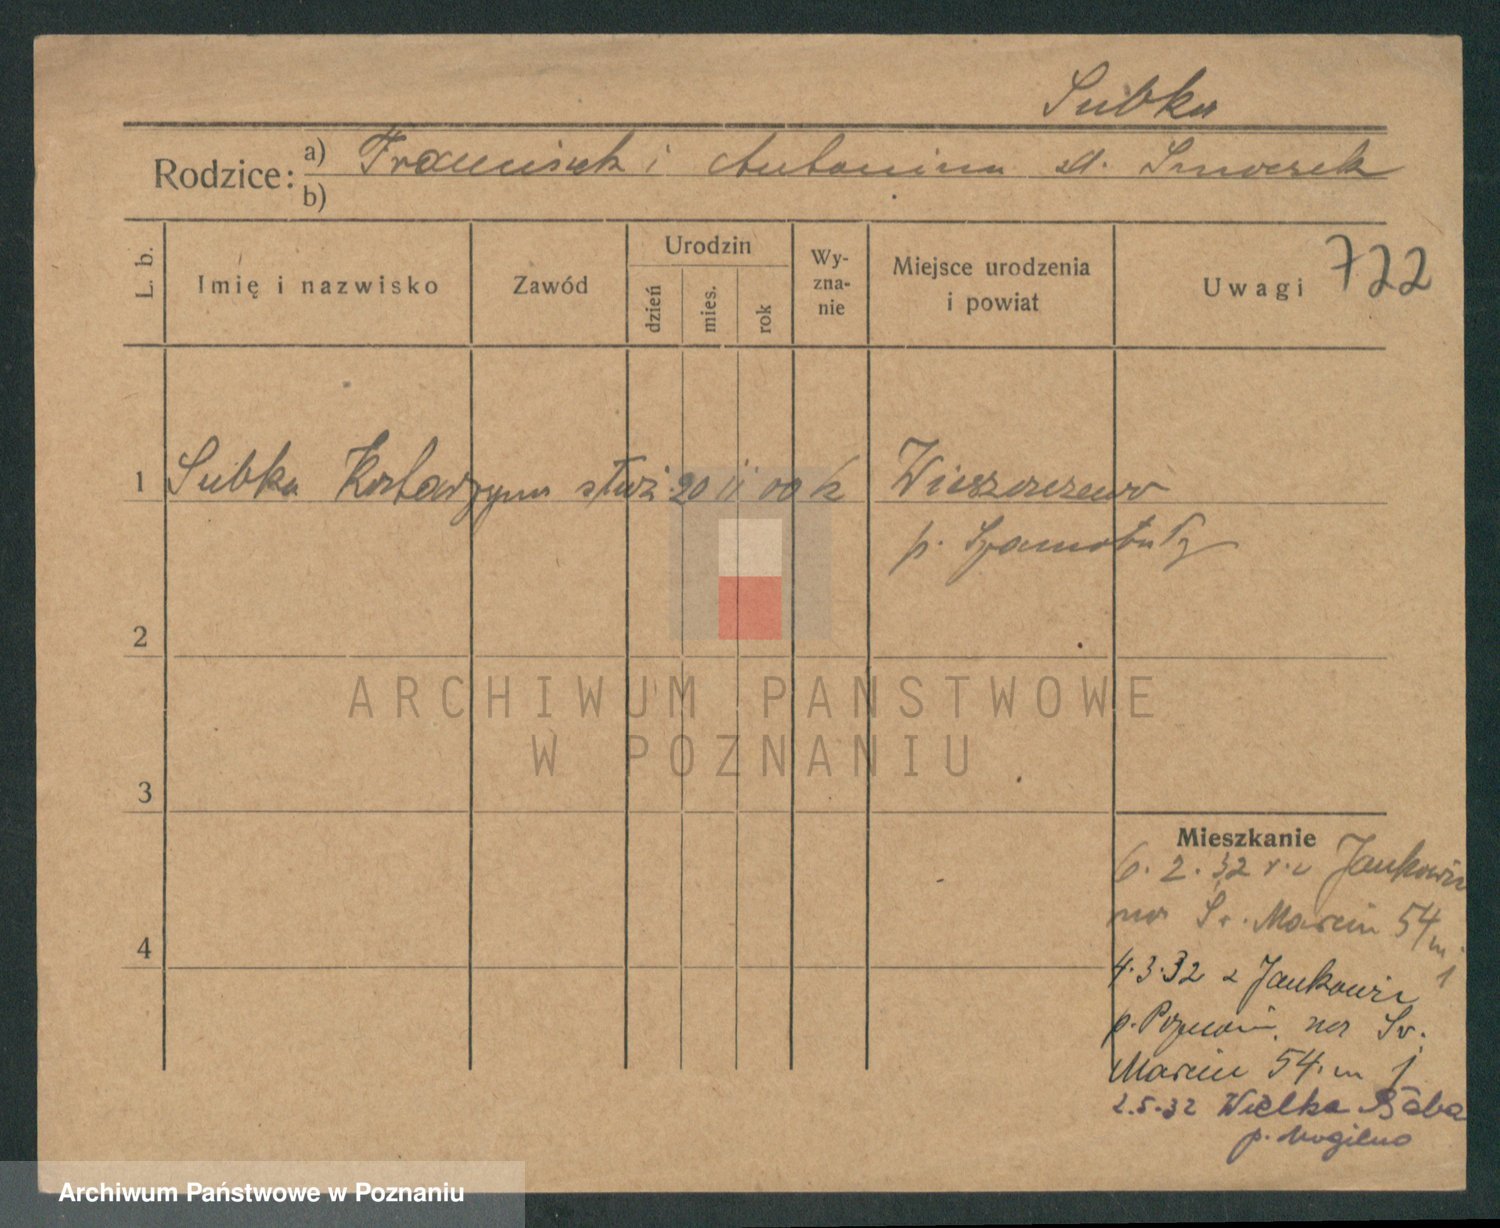 Subka
Rodzice: a) Franciszek i Antonina d. Smoczek
b)
L. b.
Imię i nazwisko
Zawód
Urodzin
dzień
mies.
rok
Wy-
zna-
nie
Miejsce urodzenia
i powiat
Uwagi
722
1 Subka Katarzyna służ 20 11 00 k
p. Szamotuły
2
ARCHIWUM PAŃSTWOWE
W POZNANIU
3
Mieszkanie
6. 2. 32 Jankowic
na Św. Marcin 54 m 1
4
4.3.32 z Jankowic
p. Poznań na Św.
Marcin 54 m 1
2.5.32 Wielka
p. Mogilno
Archiwum Państwowe w Poznaniu